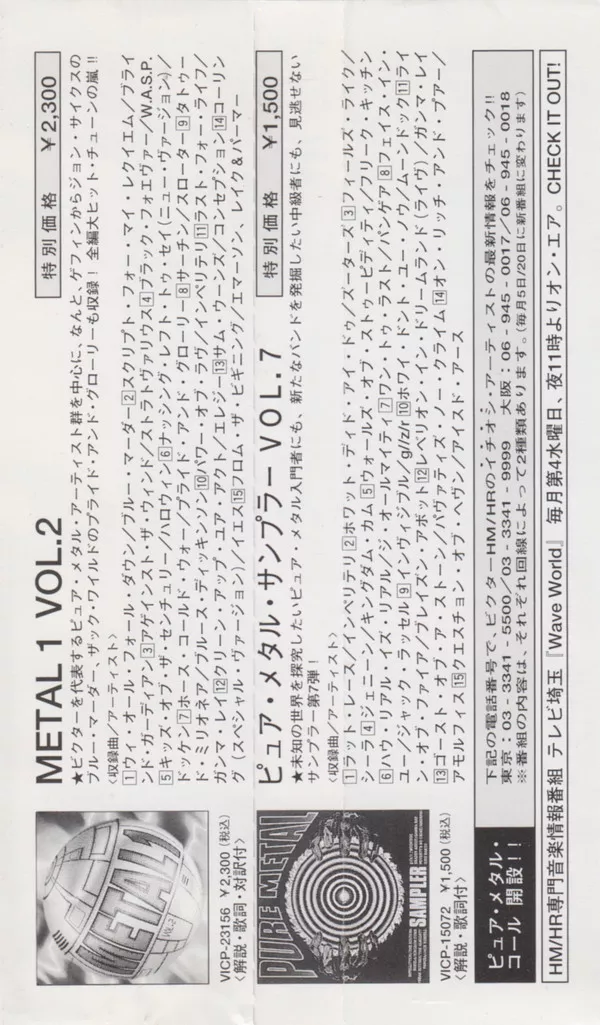 METAL 1 VOL.2
特別価格 ￥2,300
★ビクターを代表するピュア・メタル・アーティスト群を中心に、なんと、ゲフィンからジョン・サイクスの
ブルー・マーダー、ザック・ワイルドのプライド・アンド・グローリーも収録！ 全編大ヒット・チューンの嵐!!
〈収録曲/アーティスト〉
1ウィ・オール・フォール・ダウン/ブルー・マーダー2スクリプト・フォー・マイ・レクイエム/ブライ
ンド・ガーディアン3アゲインスト・ザ・ウィンド/ストラトヴァリウス4ブラック・フォエヴァー/W.A.S.P.
5キッズ・オブ・ザ・センチュリー/ハロウィン6ナッシング・レフト・トゥ・セイ(ニュー・ヴァージョン)/
ドッケン7ホース・コールド・ウォー/プライド・アンド・グローリー8サーチン/スローター9タトゥー
ド・ミリオネア/ブルース・ディッキンソン10パワー・オブ・ラヴ/インペリテリ11ラスト・フォー・ライフ/
ガンマ・レイ12クリーン・アップ・ユア・アクト/エレジー13サム・ウーンズ/コンセプション14コーリン
グ(スペシャル・ヴァージョン)/イエス15フロム・ザ・ビギニング/エマーソン、レイク&パーマー
METAL 1
Vol.2
VICP-23156 ￥2,300(税込)
〈解説・歌詞・対訳付〉
ピュア・メタル・サンプラー VOL.7
特別価格 ￥1,500
★未知の世界を探究したいピュア・メタル入門者にも、新たなバンドを発掘したい中級者にも、見逃せない
サンプラー第7弾！
〈収録曲/アーティスト〉
1ラット・レース/インペリテリ2ホワット・ディド・アイ・ドゥ/ズーターズ3フィールズ・ライク/
シーラ4ジェニーン/キングダム・カム5ウォールズ・オブ・ストゥーピディティ/フリーク・キッチン
6ハウ・リアル・イズ・リアル/ジ・オールマイティ7ワン・トゥ・ラスト/パンゲア8フェイス・イン・
ユー/ジャック・ラッセル9インヴィジブル/g//z/r10ホワイ・ドント・ユー・ノウ/ムーンドック11ライ
ン・オブ・ファイア/ブレイズン・アボット12レベリオン・イン・ドリームランド(ライヴ)/ガンマ・レイ
13ゴースト・オブ・ア・ストーン/パヴァティズ・ノー・クライム14オン・リッチ・アンド・プアー/
アモルフィス15クエスチョン・オブ・ヘヴン/アイスド・アース
PURE METAL
SAMPLER
VICP-15072 ￥1,500(税込)
〈解説・歌詞付〉
ピュア・メタル・
コール 開設!!
下記の電話番号で、ビクターHM/HRのイチオシ・アーティストの最新情報をチェック!!
東京：03-3341-5500/03-3341-9999 大阪：06-945-0017/06-945-0018
※番組の内容は、それぞれ回線によって2種類あります。(毎月5日/20日に新番組に変わります)
HM/HR専門音楽情報番組 テレビ埼玉『Wave World』 毎月第4水曜日、夜11時よりオン・エア。CHECK IT OUT!